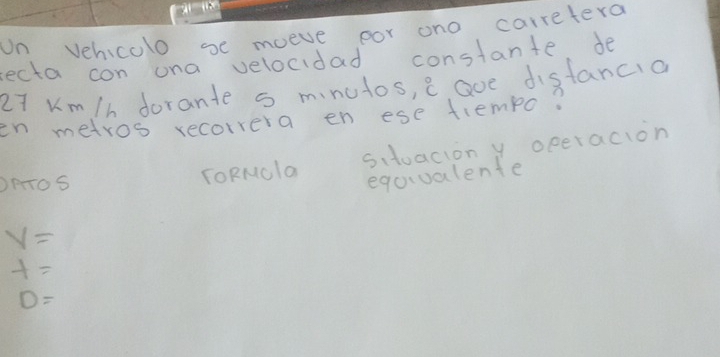 Un vehiculo se mueve por una carretera
recta con una velocidad constante de
27 Km/h dorante 5 minutos, ¿ Que distancia
en metros recorrera en ese tiempo?
DATOS FORMula situación y operación
equivalente
V=
t=
D=